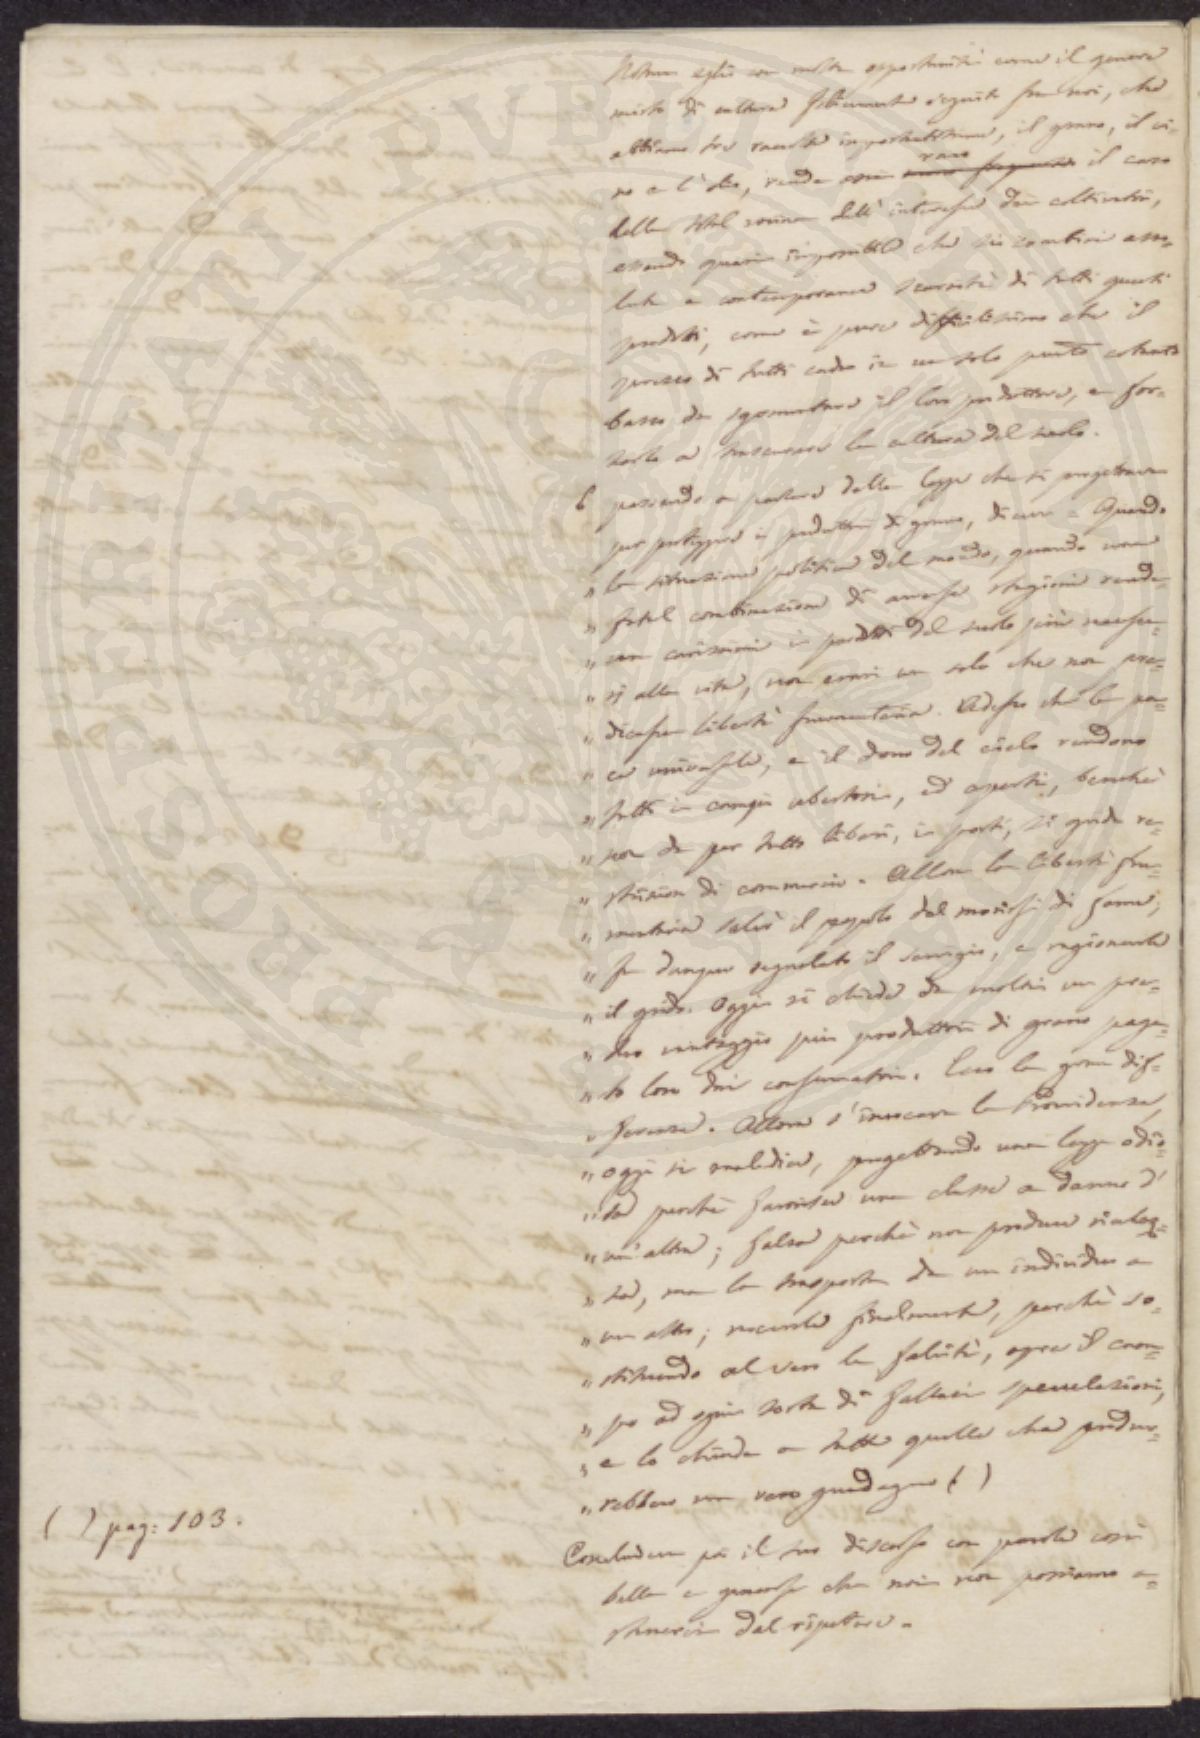 Notava egli con molta opportunità come il genere
misto di cultura felicemente eseguita fra noi, che
abbiamo tre raccolte importantissime, il grano, il vi-
no e l'olio, renda raro il caso
della total rovina dell'interesse dei coltivatori,
essendo quasi impossibile che si combini asso-
luta e contemporanea scarsità di tutti questi
prodotti, come è pure difficilissimo che il
prezzo di tutti cada in un solo punto cotanto
basso da sgomentare il loro produttore, e for-
zarlo a trascurare la cultura del suolo.
E passando a parlare della legge che si progettava
per proteggere i produttori di grano, diceva = Quando
" la situazione politica del mondo, quando una
" fatal combinazione di avverse stagioni rende-
" van carissimi i prodotti del suolo più necessa-
" rj alla vita, non eravi un solo che non pre-
" dicasse libertà frumentaria. Adesso che la pa-
" ce universale, e il dono del cielo rendono
" tutti i campi ubertosi, ed aperti, benchè
" non da per tutto liberi, i porti, si grida re-
" strizion di commercio. Allora la libertà fru-
" mentaria salvò il popolo dal morirsi di fame;
" fu dunque segnalato il servigio, e ragionevole
" il grido. Oggi si chiede da molti un per-
" duo vantaggio pei produttori di grano paga-
" to loro dai consumatori. Ecco la gran dif-
" ferenza. Allora s'invocava la Provvidenza,
" oggi si maledice, progettando una legge odio-
" sa perchè favorisce una classe a danno d'
" un'altra; falsa perchè non produce ricchez-
" za, ma la trasporta da un individuo a
" un altro; nocevole finalmente, perchè so-
" stituendo al vero la falsità, apre il cam-
" po ad ogni sorta di fallaci speculazioni,
" e lo chiude a tutte quelle che produr-
" rebbero un vero guadagno ( )
( ) pag: 103.
Concludeva poi il suo discorso con parole così
belle e generose che noi non possiamo a-
stenerci dal ripetere.